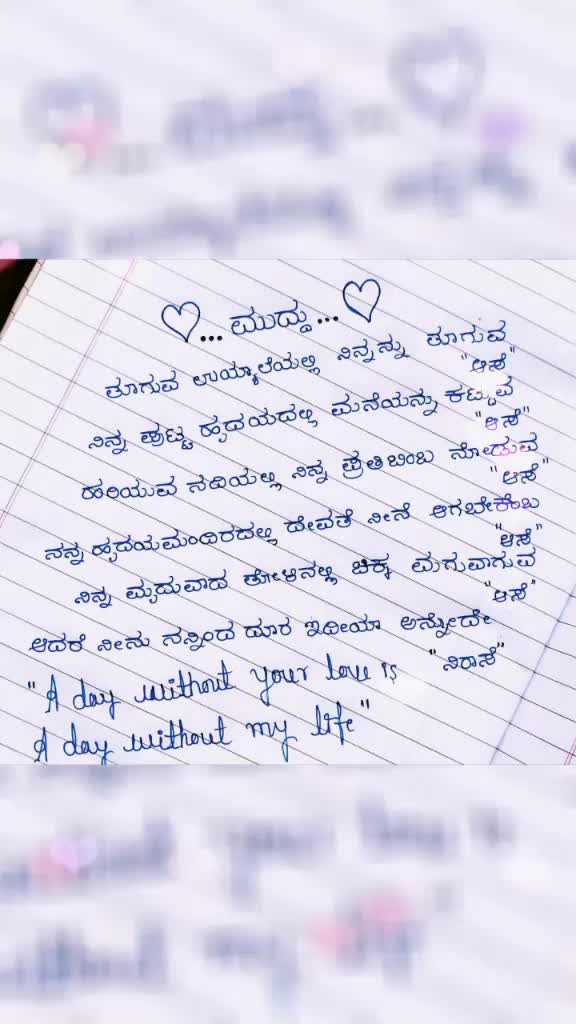 ... ಮುದ್ದು ...
ತೂಗುವ ಉಯ್ಯಾಲೆಯಲ್ಲಿ ನಿನ್ನನ್ನು ತೂಗುವ
"ಆಸೆ"
ನಿನ್ನ ಪುಟ್ಟ ಹೃದಯದಲ್ಲಿ ಮನೆಯನ್ನು ಕಟ್ಟುವ
"ಆಸೆ"
ಹರಿಯುವ ನದಿಯಲ್ಲಿ ನಿನ್ನ ಪ್ರತಿಬಿಂಬ ನೋಡುವ
"ಆಸೆ"
ನನ್ನ ಹೃದಯಮಂದಿರದಲ್ಲಿ ದೇವತೆ ನೀನೆ ಆಗಬೇಕೆಂಬ
"ಆಸೆ"
ನಿನ್ನ ಮೃದುವಾದ ತೋಳಿನಲ್ಲಿ ಚಿಕ್ಕ ಮಗುವಾಗುವ
"ಆಸೆ"
ಆದರೆ ನೀನು ನನ್ನಿಂದ ದೂರ ಇದೀಯಾ ಅನ್ನೋದೇ
"ನಿರಾಸೆ"
"A day without your love is
A day without my life"